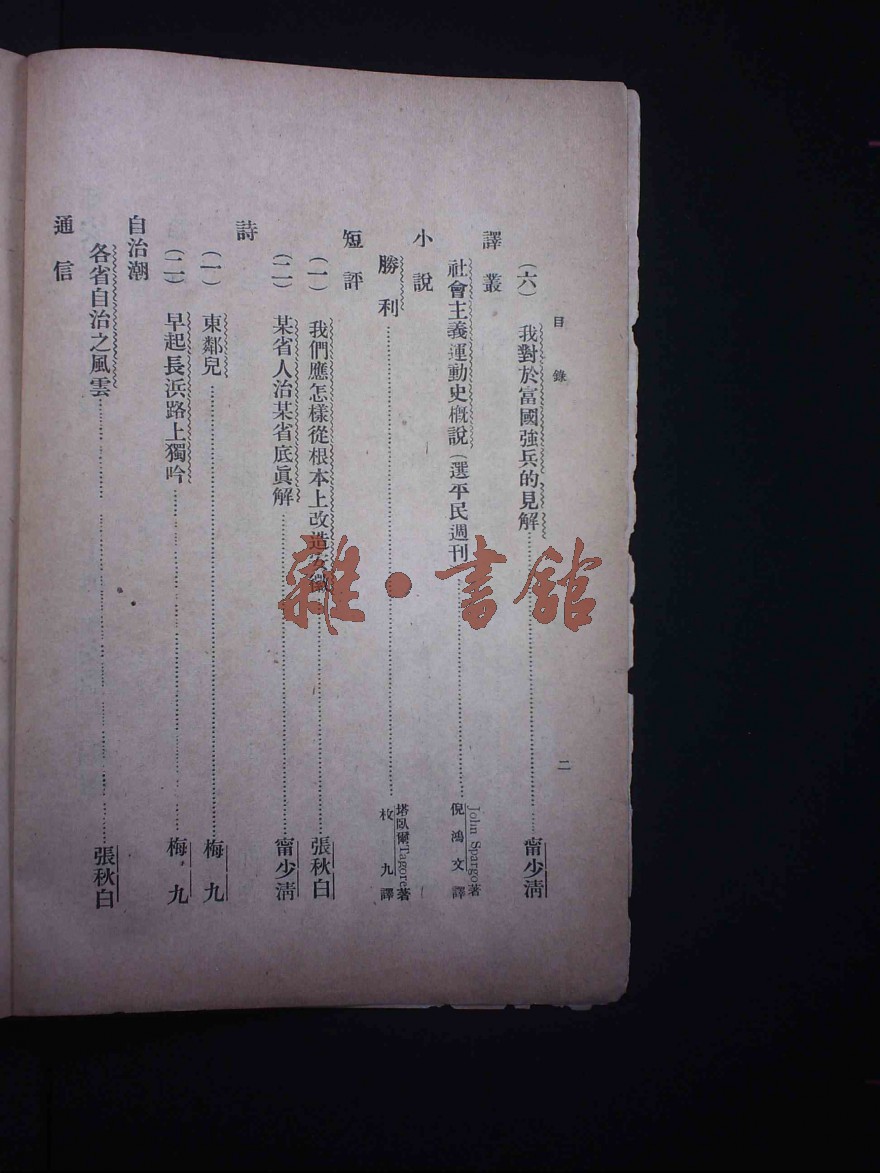 目錄
二
(六) 我對於富國強兵的見解 甯少清
譯叢
社會主義運動史概說 (選平民週刊 John Spargo著 倪鴻文譯
小說
勝利 塔臥爾Tagore著 枚九譯
短評
(一) 我們應怎樣從根本上改造安徽 張秋白
(二) 某省人治某省底眞解 甯少清
詩
(一) 東鄰兒 梅九
(二) 早起長浜路上獨吟 梅九
自治潮
各省自治之風雲 張秋白
通信
雜·書館